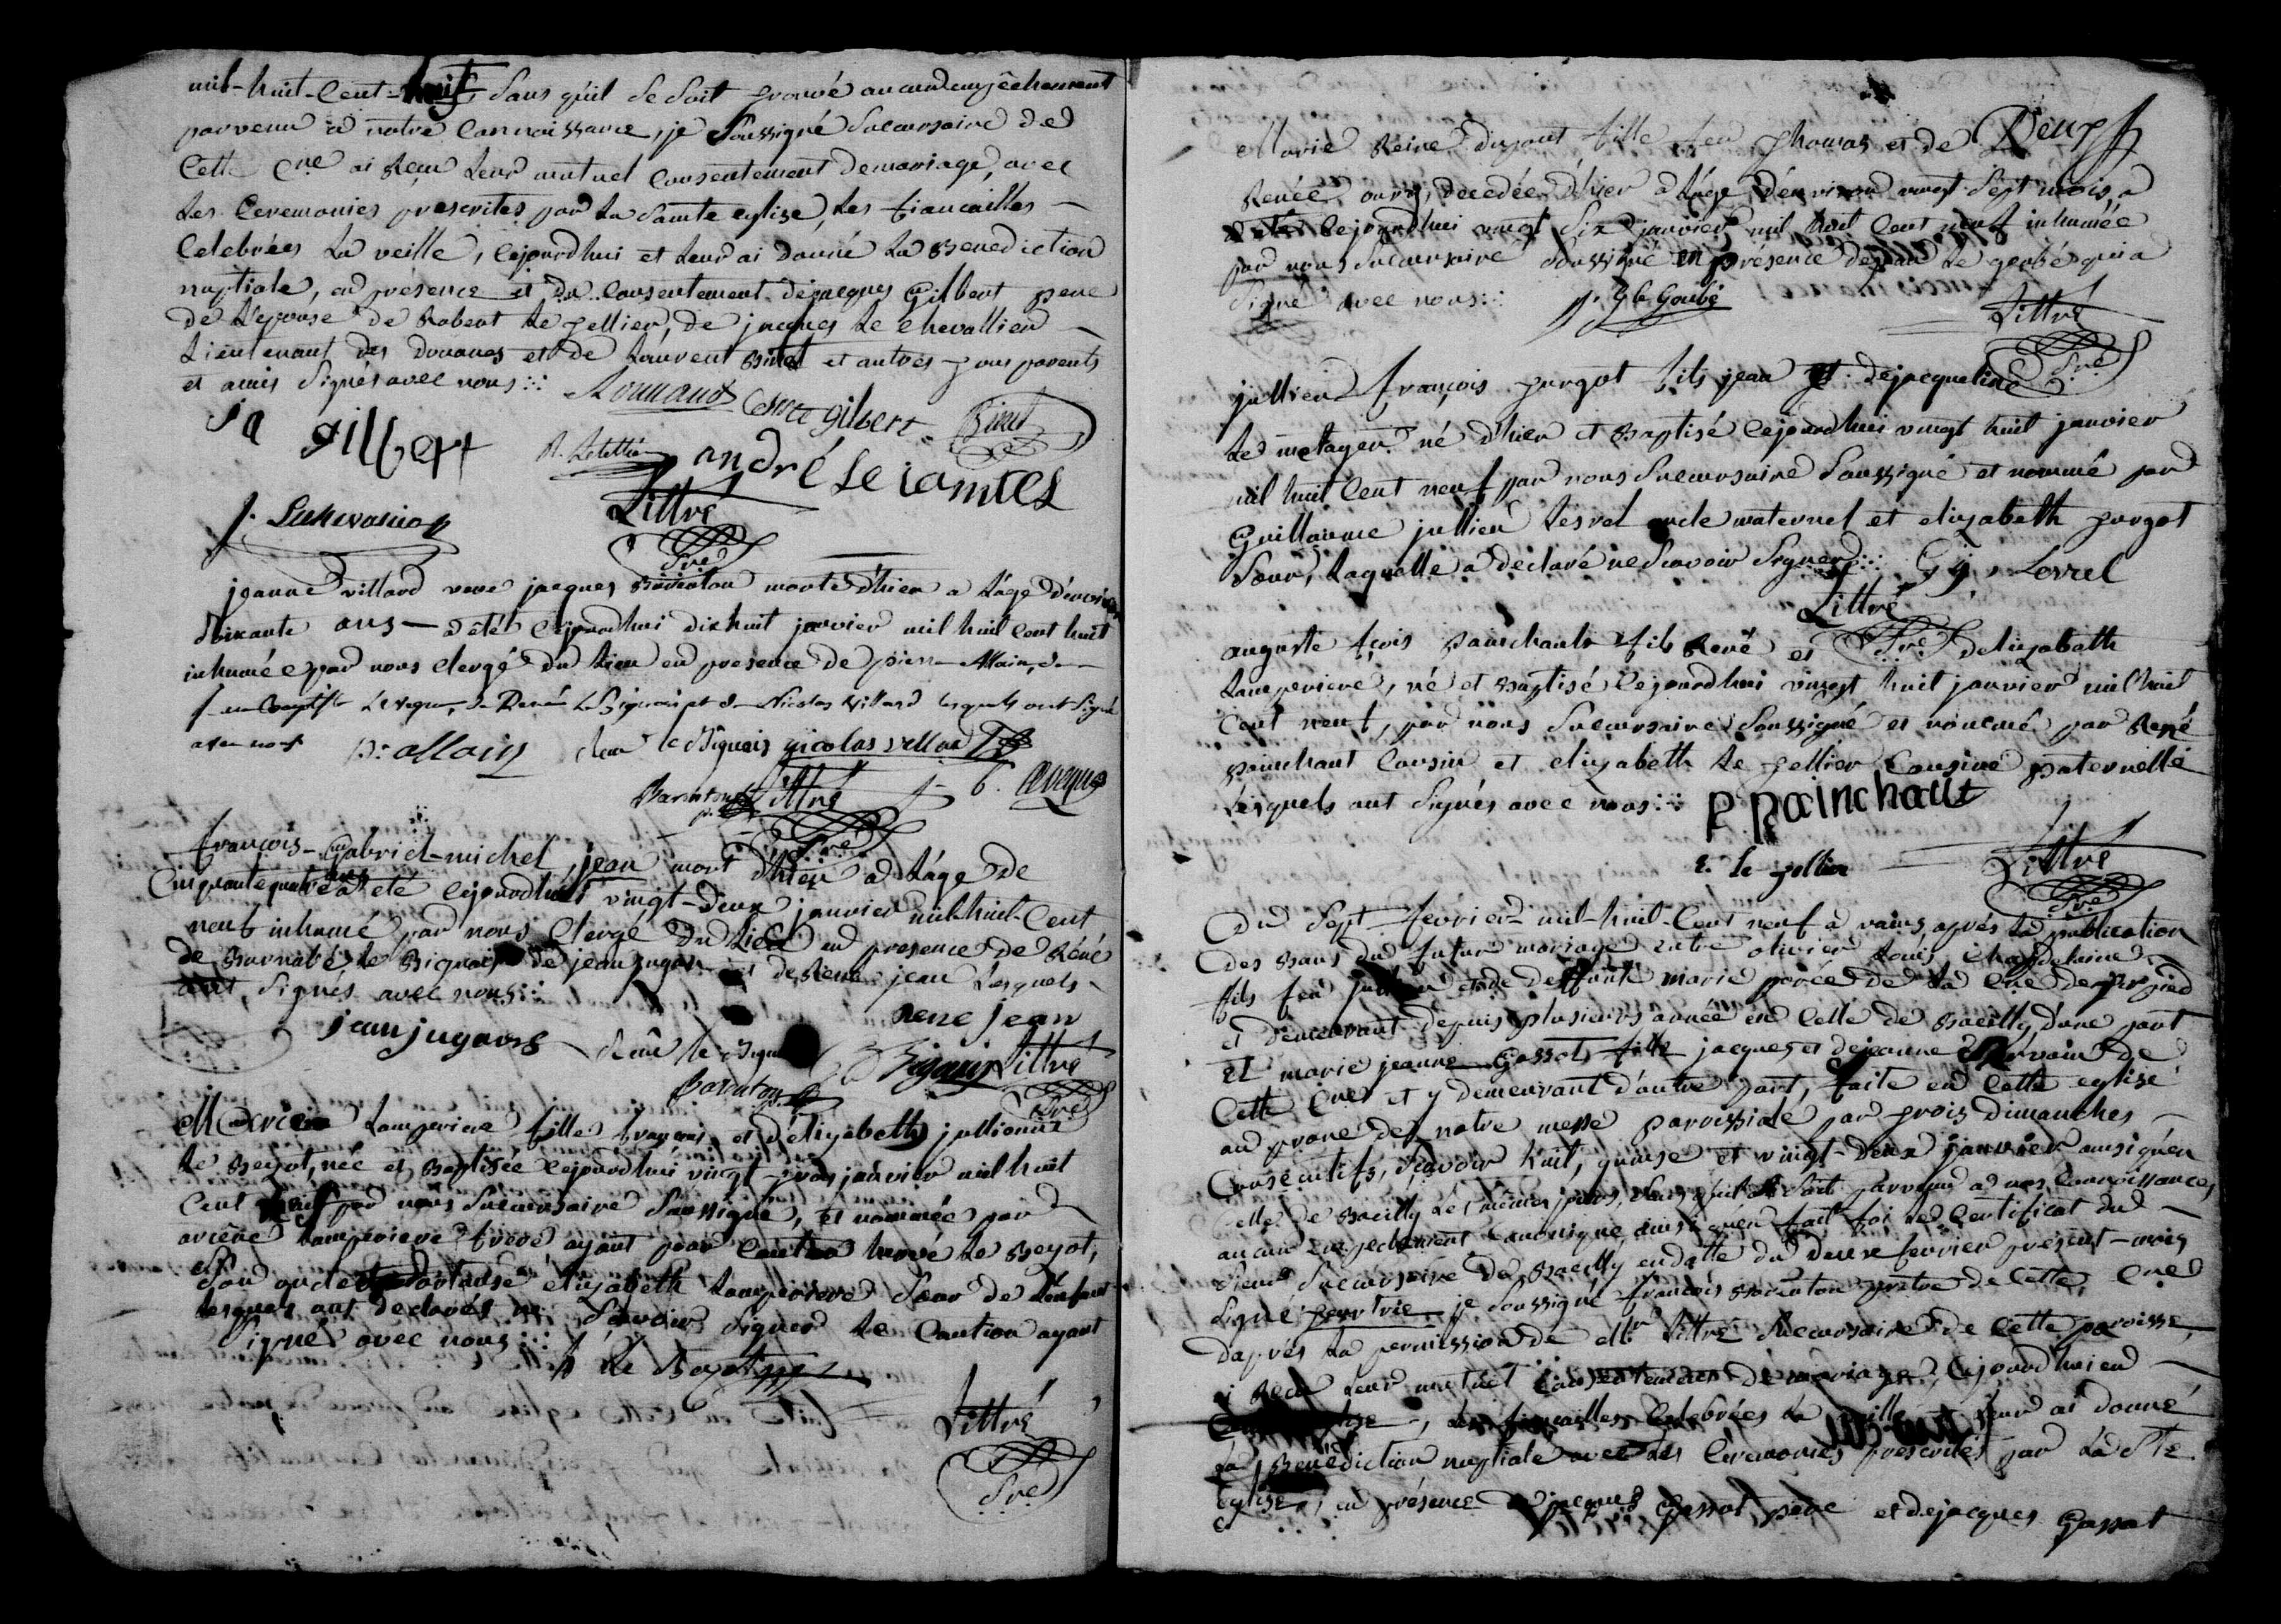 mil-huit-cent-huit, sans qu'il se soit trouvé aucun empêchement
parvenu a notre connoissance, je soussigné succursaire de
cette cne ai reçu leur mutuel consentement de mariage, avec
les ceremonies prescrites par la sainte eglise, les fiancailles
celebrées la veille, cejourdhui et leur ai donné la benediction
nuptiale, en présence et du consentement de jacques gilbert pere
de l'epouse de Robert le pellier, de jacques le chevallier
lieutenant des douanes et de laurent Binet et autres tous parents
et amis signés avec nous
gilbert Binet
ja gilbert
andré le comtes
Littré
sre
jeanne villard veuve jacques Barenton morte d'hier a l'age d'environ
soixante ans a été cejourdhui dix huit janvier mil huit cent huit
inhumée par nous clergé du lieu en presence de pierre Allain, de
Leveque, de René le Biguais et de Nicolas Villard lesquels ont signé
avec nous p: allain rene le Biguais nicolas villard
Barenton Littré
sre
françois-Gabriel-michel jean mort d'hier a l'age de
cinquante quatre ans a été cejourdhui vingt-deux janvier mil-huit-cent
neuf inhumé par nous clergé du lieu en presence de Réné
de Barnabé le Biguais de jean jugan et de Rene jean lesquels
ont signés avec nous
jean jugans rene jean
réné le Bigu Bigais Littré
Barenton sre
Marie Lamperiere fille françois et d'elizabeth jullienne
le Beyot, née et baptisée cejourdhui vingt-trois janvier mil huit
cent neuf par nous succursaire soussigné, et nommée par
Lamperiere frere ayant pour caution hervé le Beyot,
son oncle et elizabeth Lamperiere soeur de l'enfant
lesquels ont declarés ne sçavoir signer le caution ayant
signé avec nous
le Beyot
Littré
sre
Marie Reine dupont fille feu thomas et de
Renée ourry, decedée d'hier a l'age d'environ vingt-sept mois, a
été cejourdhui vingt six janvier mil huit cent neuf inhumée
par nous succursaire soussigné en présence de jean le gerbé qui a
signé avec nous
Littré
sre
jullien françois turgot fils jean et de jacqueline
le métayer né d'hier et baptisé cejourdhui vingt huit janvier
mil huit cent neuf par nous succursaire soussigné et nommé par
Guillaume jullien lesrel oncle maternel et elizabeth turgot
soeur, laquelle a declaré ne sçavoir signer G j. Lesrel
Littré
auguste fçois painchault fils René et sre d'elizabeth
Lamperiere, né et baptisé cejourdhui vingt huit janvier mil huit
cent neuf, par nous succursaire soussigné et nommé par René
painchaut cousin et elizabeth le pellier cousine paternelle
lesquels ont signés avec nous p painchaut
e. le pellier Littré
sre
Du sept fevrier mil-huit-cent neuf a vains, après la publication
des bans du futur mariage entre olivier Louis Chapdelaine
fils feu jullien et de deffunte marie porée de la cne de pied
et demeurant depuis plusieurs année en celle de Bacilly d'une part
et marie jeanne Gassot fille jacques et de jeanne de
cette cne et y demeurant d'autre part, faite en cette eglise
au prone de notre messe paroissiale par trois dimanches
consecutifs, sçavoir huit, quinze et vingt-deux janvier ainsi qu'en
celle de Bacilly les mêmes jours, sans qu'il se soit parvenu a nos connoissances
aucun empechement canonique ainsi qu'en fait foi le certificat du
sieur succursaire de Bacilly en datte du deux fevrier present-mois
signé je soussigné françois Barenton pretre de cette cne
d'apres la permission de Mr Littré succursaire de cette paroisse,
ai reçu leur mutuel consentement de mariage, cejourdhui en
les fiancailles celebrées la veille leur ai donné
la Benediction nuptiale avec les ceremonies prescrites par la Ste
eglise, en présence de jacques Gassot pere et de jacques Gassot